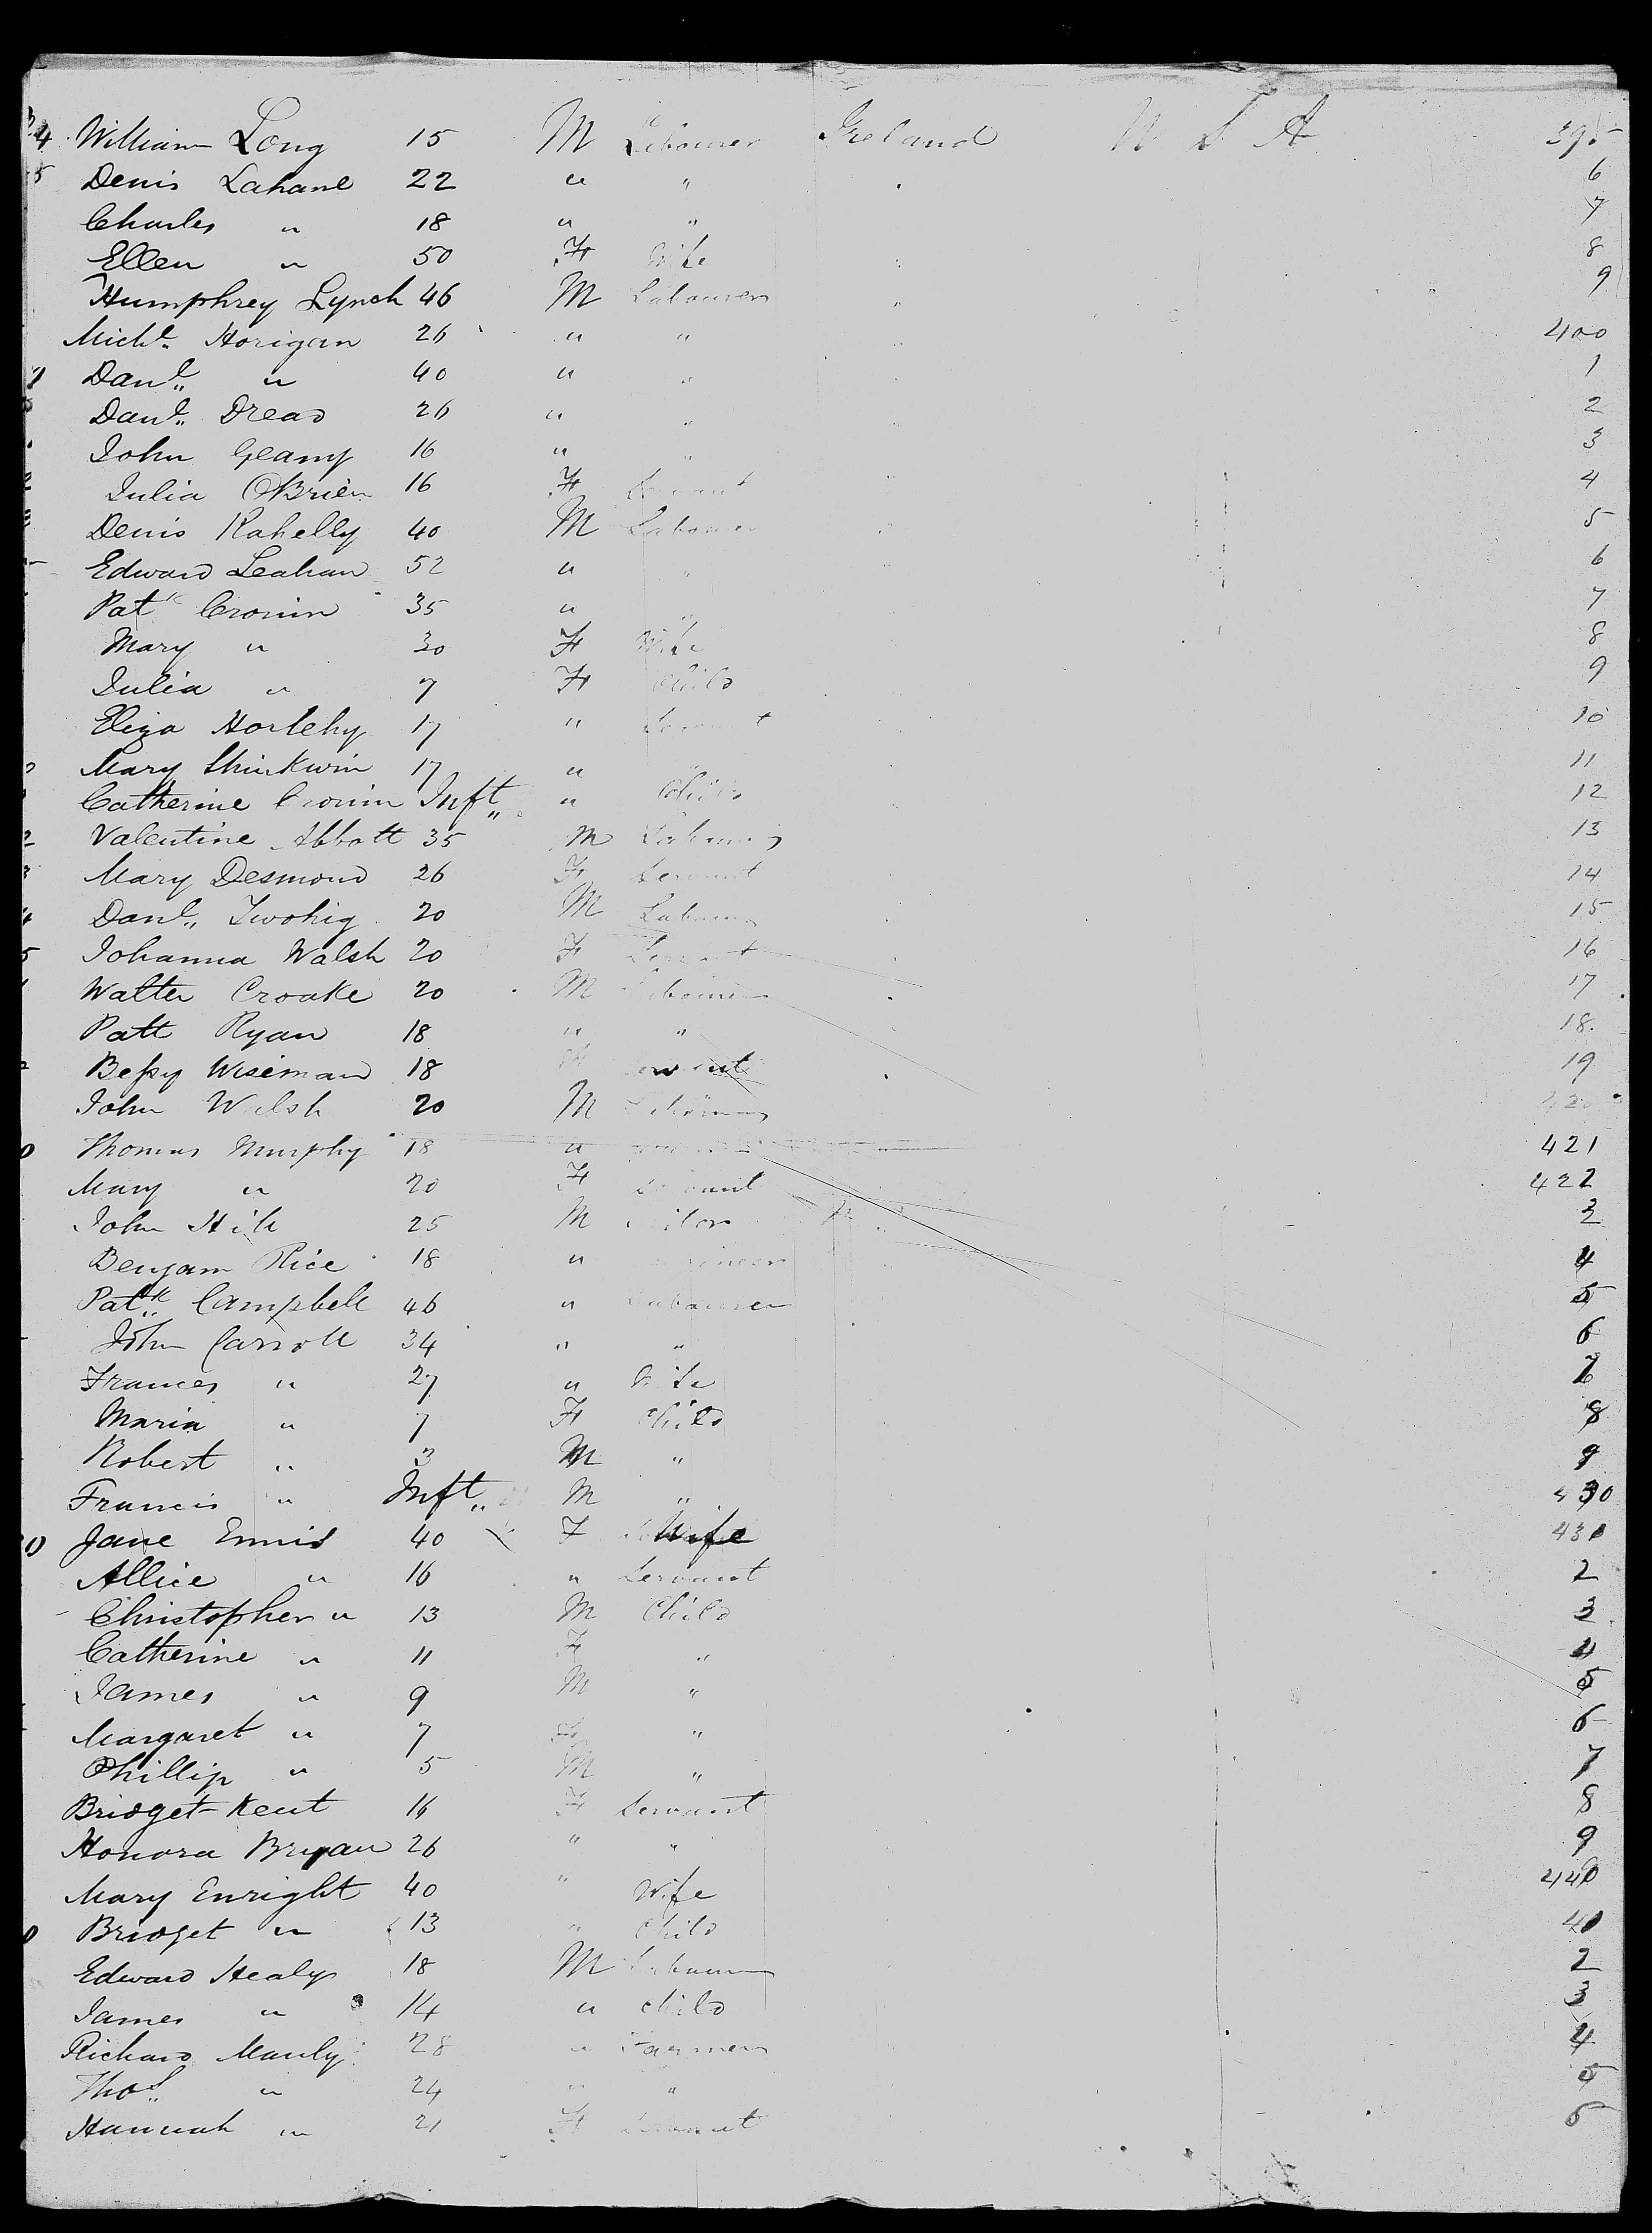 4 William Long 15 M Labourer Ireland U S A 395
5 Denis Lahane 22 " " 6
Charles " 18 " " 7
Ellen " 50 F Wife 8
Humphrey Lynch 46 M Labourer 9
Michl. Horigan 26 " " 400
Danl. " 40 " " 1
Danl. Dread 26 " " 2
John Geany 16 " " 3
Julia O'Brien 16 F Servant 4
Denis Kahelly 40 M Labourer 5
Edward Leahan 52 " " 6
Patk Cronin 35 " " 7
Mary " 30 F Wife 8
Julia " 7 F Child 9
Eliza Horlehy 17 " Servant 10
Mary Shinkwin 17 " 11
Catherine Cronin Inft " Child 12
Valentine Abbott 35 M Labourer 13
Mary Desmond 26 F Servant 14
Danl. Twohig 20 M Labourer 15
Johanna Walsh 20 F Servant 16
Walter Croake 20 M Labourer 17
Patt Ryan 18 " " 18
Bessy Wiseman 18 Servant 19
John Walsh 20 M Labourer 420
Thomas Murphy 18 " 421
Mary " 20 F Servant 422
John Hill 25 M 3
Benjam Rice 18 " 4
Patk. Campbell 46 " Labourer 5
John Carroll 34 " " 6
Frances " 27 " Wife 7
Maria " 7 F Child 8
Robert " 3 M " 9
Francis " Inft M " 430
Jane Ennis 40 F Wife 431
Allice " 16 " Servant 2
Christopher " 13 M Child 3
Catherine " 11 F " 4
James " 9 M " 5
Margaret " 7 F " 6
Phillip " 5 M " 7
Bridget Kent 16 F Servant 8
Honora Bryan 26 " " 9
Mary Enright 40 " Wife 440
Bridget " 13 " Child 41
Edward Healy 18 M Labourer 2
James " 14 " Child 3
Richard Manly 28 " Farmer 4
Thos. " 24 " " 5
Hannah " 21 F Servant 6